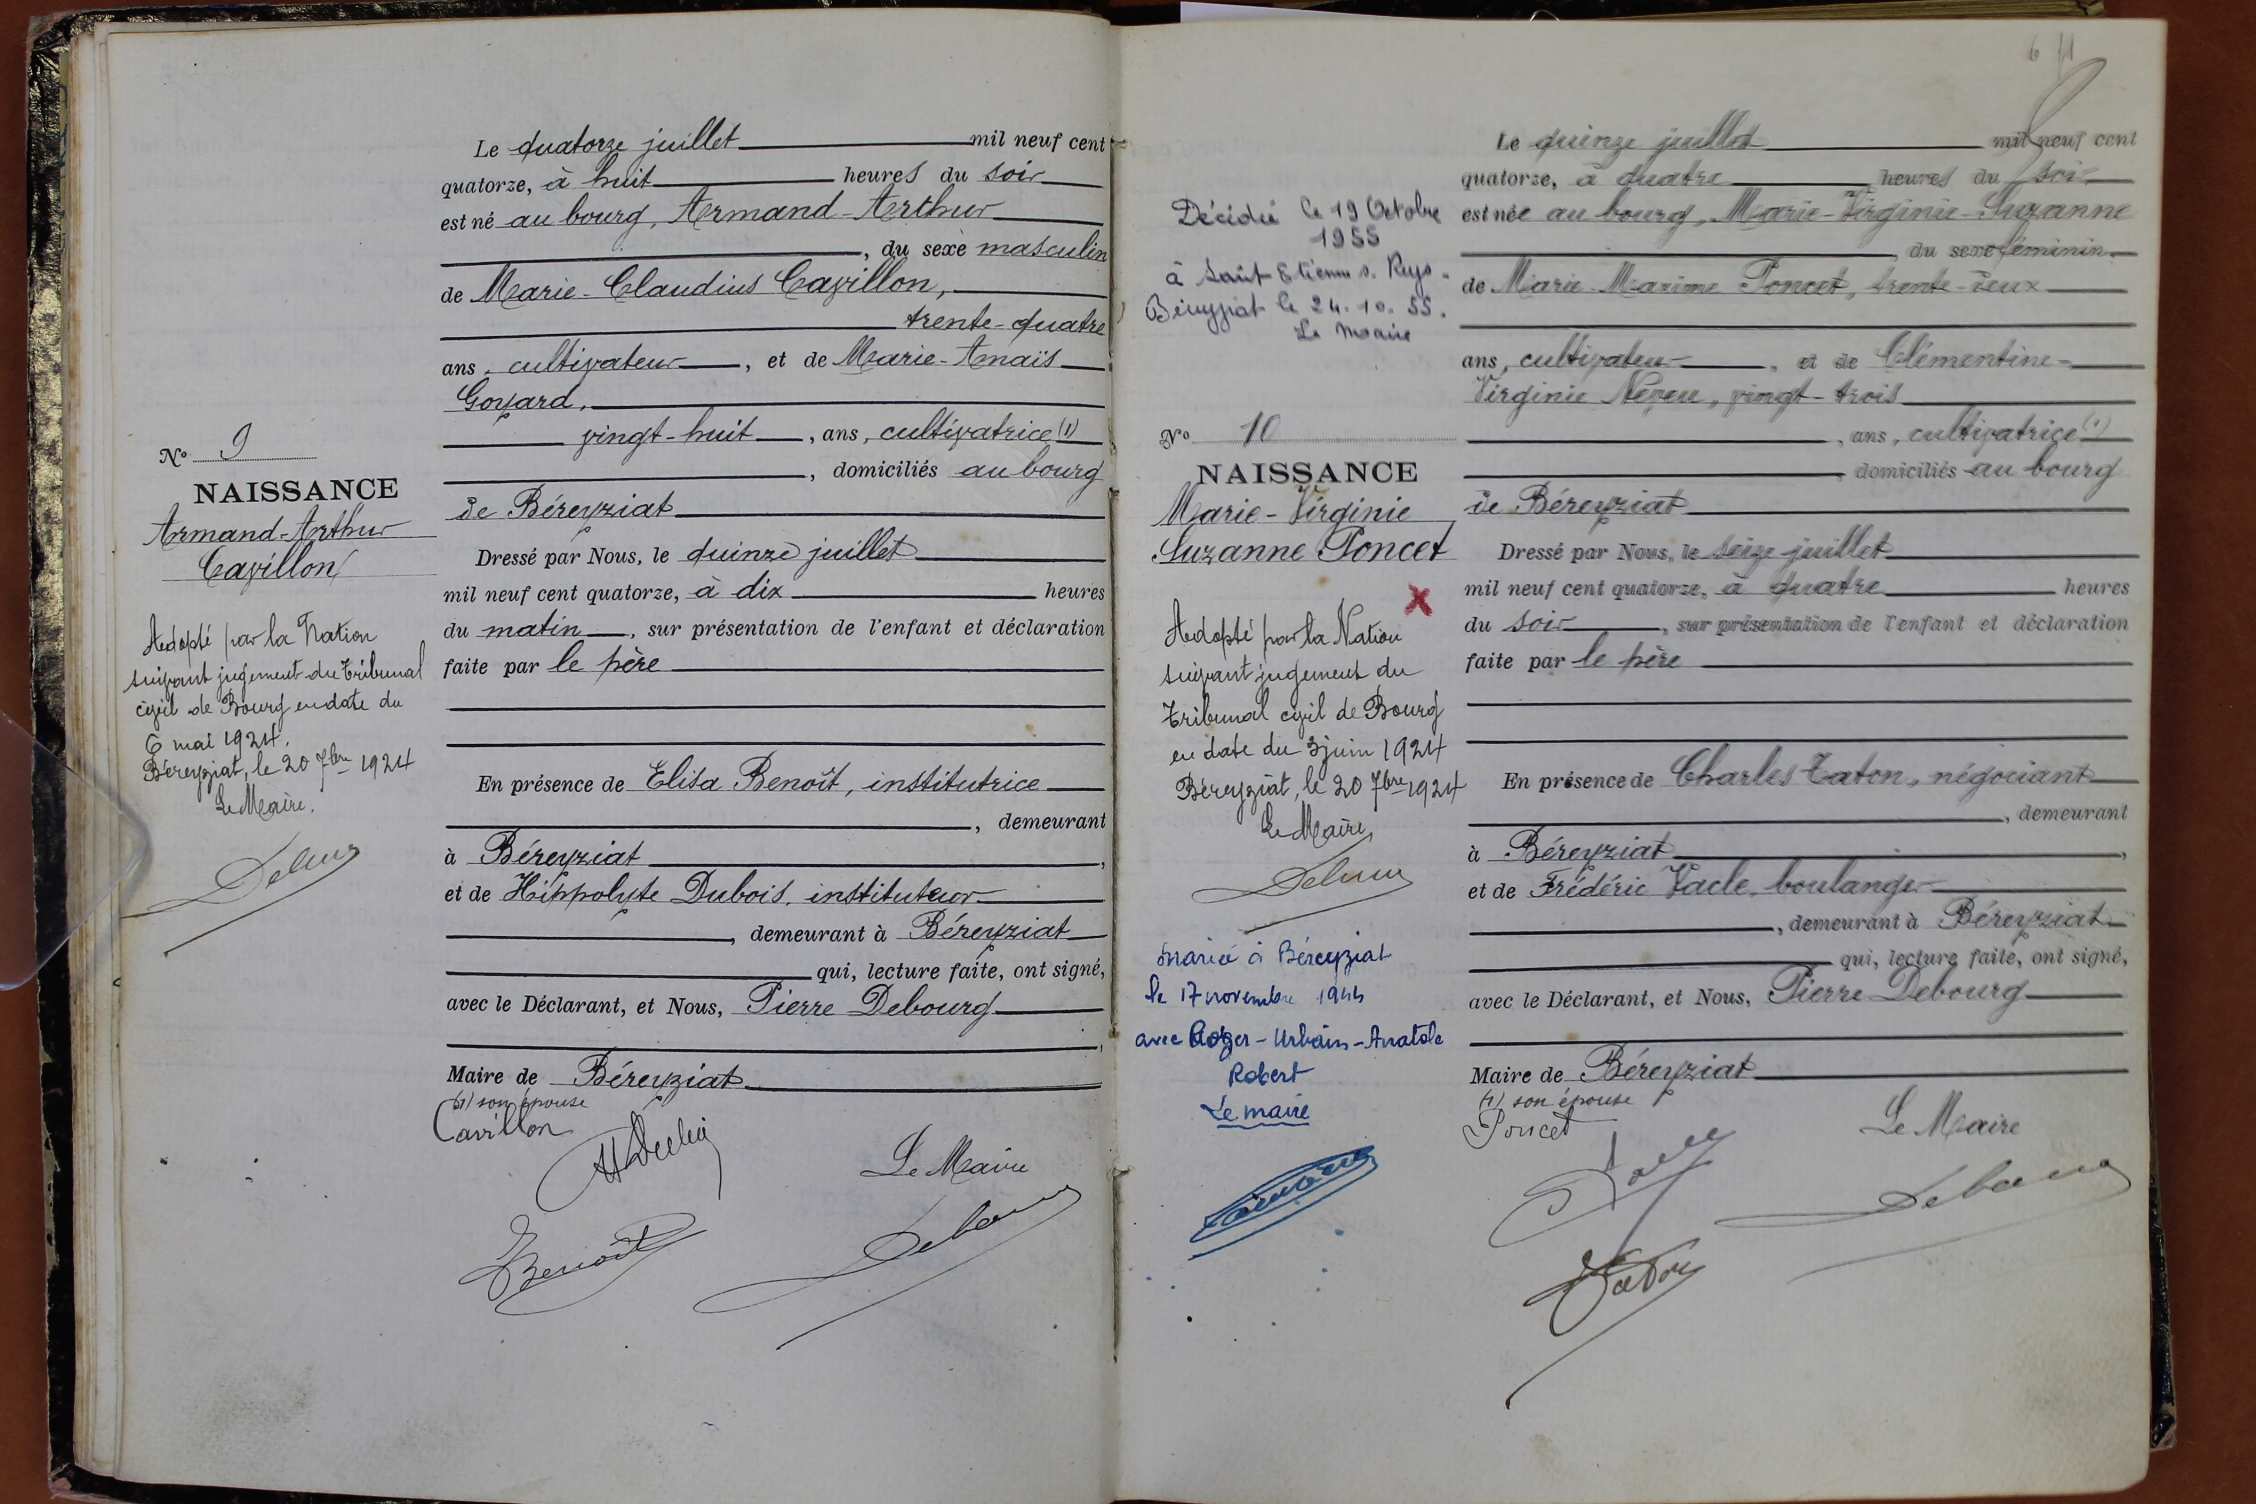 Le quatorze juillet mil neuf cent
quatorze, à huit heures du soir
est né au bourg, Armand-Arthur
, du sexe masculin
de Marie-Claudius Cavillon,
trente-quatre
ans, cultivateur, et de Marie-Anaïs
Goyard,
vingt-huit, ans, cultivatrice (1)
, domiciliés au bourg
de Béreyziat
Dressé par Nous, le quinze juillet
mil neuf cent quatorze, à dix heures
du matin, sur présentation de l'enfant et déclaration
faite par le père
En présence de Elisa Benoît, institutrice
, demeurant
à Béreyziat,
et de Hippolyte Dubois, instituteur
, demeurant à Béreyziat
qui, lecture faite, ont signé,
avec le Déclarant, et Nous, Pierre Debourg
,
Maire de Béreyziat
(1) son épouse
Cavillon
Le Maire
Benoît
Debourg
No 9
NAISSANCE
Armand-Arthur
Cavillon
Adopté par la Nation
suivant jugement du tribunal
civil de Bourg en date du
6 mai 1924.
Béreyziat, le 20 7bre 1924
Le Maire.
6
Le quinze juillet mil neuf cent
quatorze, à quatre heures du soir
est née au bourg, Marie-Virginie-Suzanne
, du sexe féminin
de Marie-Maxime Poncet, trente-deux
ans, cultivateur, et de Clémentine-
Virginie Neveu, vingt-trois
, ans, cultivatrice (1)
, domiciliés au bourg
de Béreyziat
Dressé par Nous, le seize juillet
mil neuf cent quatorze, à quatre heures
du soir, sur présentation de l'enfant et déclaration
faite par le père
En présence de Charles Taton, négociant
, demeurant
à Béreyziat,
et de Frédéric Vacle, boulanger
, demeurant à Béreyziat
qui, lecture faite, ont signé,
avec le Déclarant, et Nous, Pierre Debourg
Maire de Béreyziat
(1) son épouse
Poncet
Le Maire
Debourg
Taton
Décédée le 19 Octobre
1955
à Saint Etienne s. Reys.
Béreyziat le 24.10.55.
Le Maire
No 10
NAISSANCE
Marie-Virginie
Suzanne Poncet
Adopté par la Nation
suivant jugement du
tribunal civil de Bourg
en date du 3 juin 1924
Béreyziat, le 20 7bre 1924
Le Maire
mariée à Béreyziat
le 17 novembre 1944
avec Roger-Urbain-Anatole
Robert
Le maire